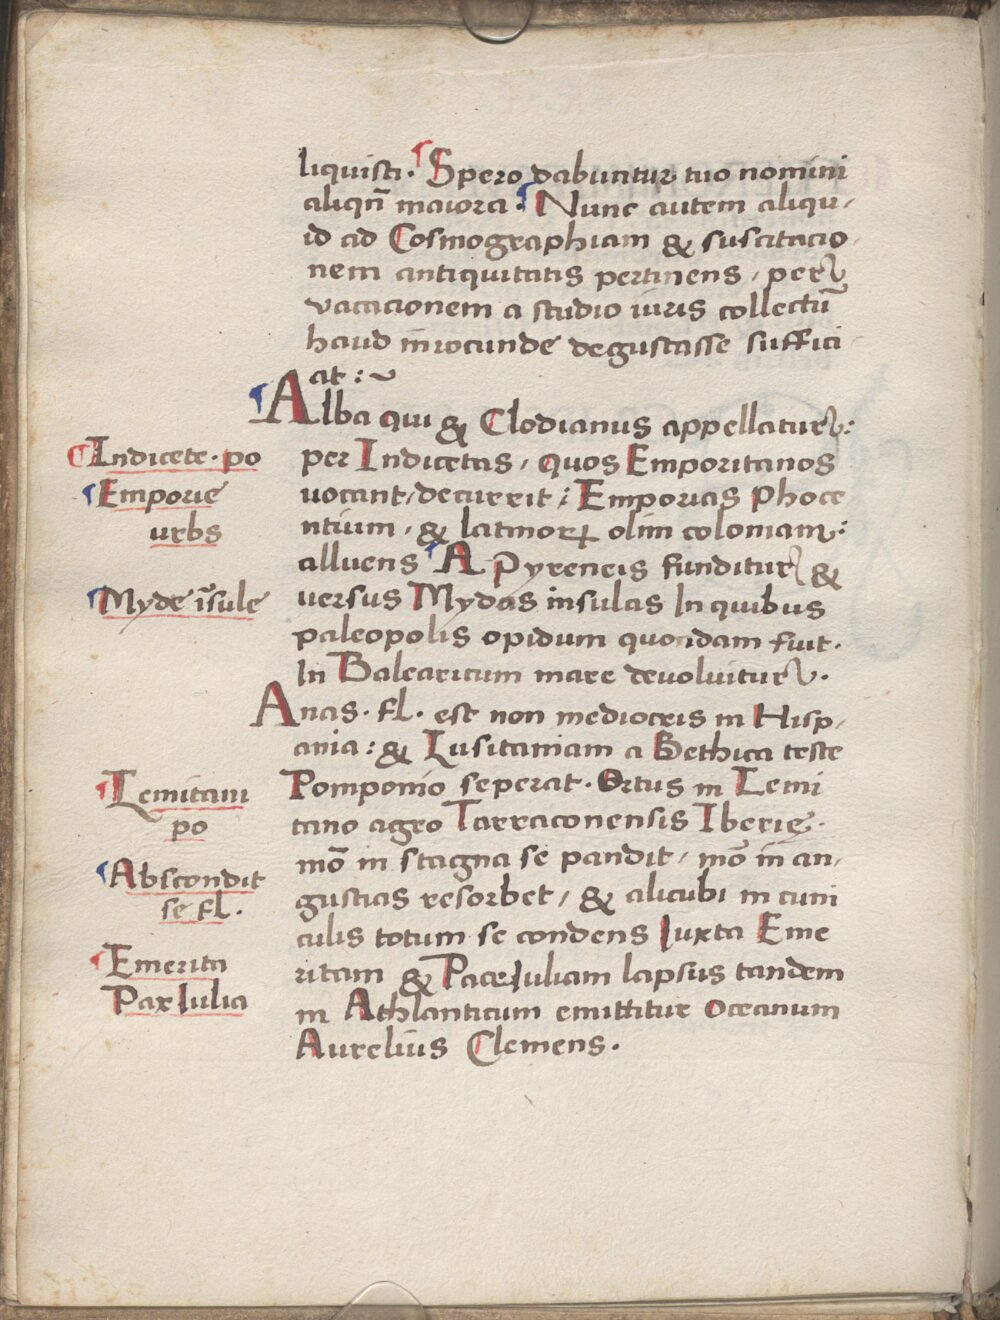 liquisti. Spero dabuntur tuo nomini
aliqñ maiora. Nunc autem aliqu-
id ad Cosmographiam & suscitacio
nem antiquitatis pertinens, per
vacacionem a studio iuris collectū
haud iniocunde degustasse suffici
at :~
Alba qui & Clodianus appellatur:
per Indicetas, quos Emporitanos
uocant, decurrit: Emporias Phoce
ntium, & latinorꝝ olim coloniam:
alluens A Pyreneis funditur &
versus Mydas insulas In quibus
paleopolis opidum quondam fuit.
In Balearicum mare devoluitur.
Anas. fl. est non mediocris in Hisp-
ania: & Lusitaniam a Bethica teste
Pomponio seperat. Ortus in Lemi
tano agro Tarraconensis Iberie.
mō in stagna se pandit, mō in an-
gustias resorbet, & alicubi in cuni
culis totum se condens Iuxta Eme
ritam & Pacem Iuliam lapsus tandem
in Athlanticum emittitur oceanum
Aurelius Clemens.
Indicete. po
Emporie
urbs
Myde īsule
Lemitani
po
Abscondit
se fl.
Emerita
Pax Iulia